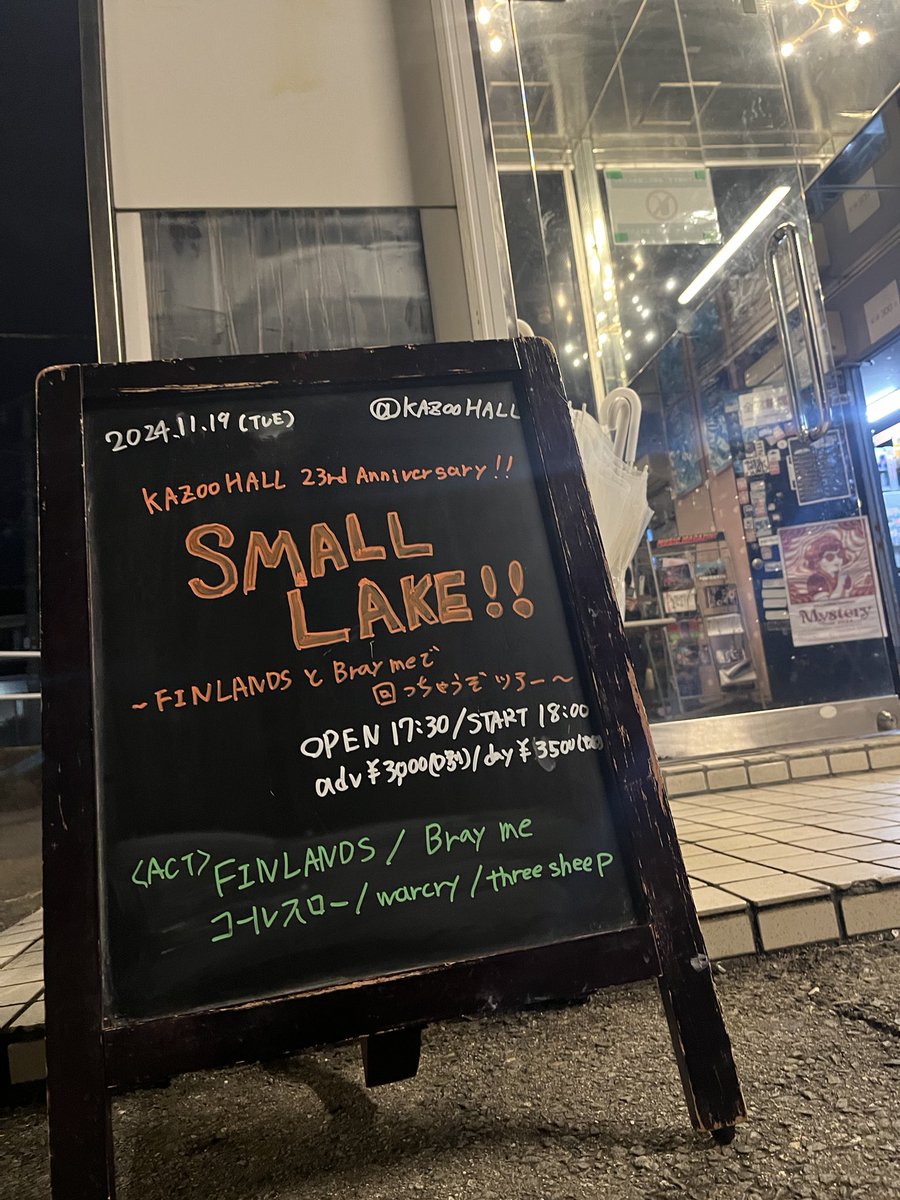 2024.11.19 (TUE) @KAZOO HALL
KAZOO HALL 23rd Anniversary!!
SMALL
LAKE!!
~FINLANDS と Bray me で
回っちゃうぞツアー~
OPEN 17:30/START 18:00
adv ¥3000(D別)/day ¥3500(D別)
<ACT> FINLANDS / Bray me
コールスロー/warcry/three sheep
Mystery